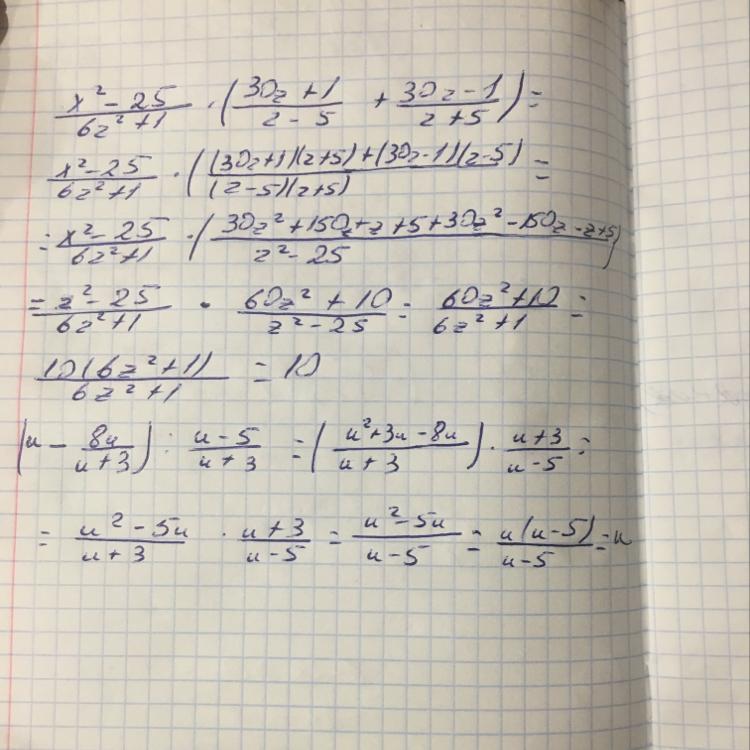 (x² - 25)/(6z² + 1) · ((30z + 1)/(z - 5) + (30z - 1)/(z + 5)) =
(x² - 25)/(6z² + 1) · (((30z + 1)(z + 5) + (30z - 1)(z - 5))/((z - 5)(z + 5))) =
= (x² - 25)/(6z² + 1) · ((30z² + 150z + z + 5 + 30z² - 150z - z + 5)/(z² - 25))
= (z² - 25)/(6z² + 1) · (60z² + 10)/(z² - 25) = (60z² + 10)/(6z² + 1) =
10(6z² + 1)/(6z² + 1) = 10
(u - 8u/(u + 3)) : (u - 5)/(u + 3) = ((u² + 3u - 8u)/(u + 3)) · (u + 3)/(u - 5) =
= (u² - 5u)/(u + 3) · (u + 3)/(u - 5) = (u² - 5u)/(u - 5) = u(u - 5)/(u - 5) = u